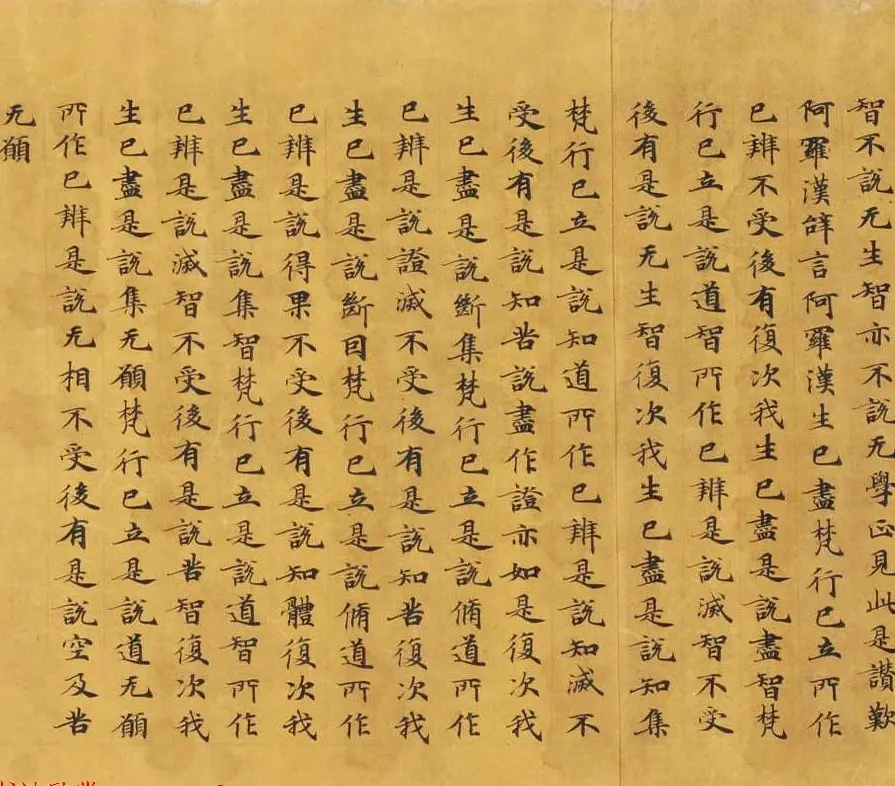 智不說无生智亦不說无學正見此是讃歎
阿羅漢辞言阿羅漢生已盡梵行已立所作
已辨不受後有復次我生已盡是說盡智梵
行已立是說道智所作已辨是說滅智不受
後有是說无生智復次我生已盡是說知集
梵行已立是說知道所作已辨是說知滅不
受後有是說知苦說盡作證亦如是復次我
生已盡是說斷集梵行已立是說脩道所作
已辨是說證滅不受後有是說知苦復次我
生已盡是說斷因梵行已立是說脩道所作
已辨是說得果不受後有是說知體復次我
生已盡是說集智梵行已立是說道智所作
已辨是說滅智不受後有是說苦智復次我
生已盡是說集无願梵行已立是說道无願
所作已辨是說无相不受後有是說空及苦
无願